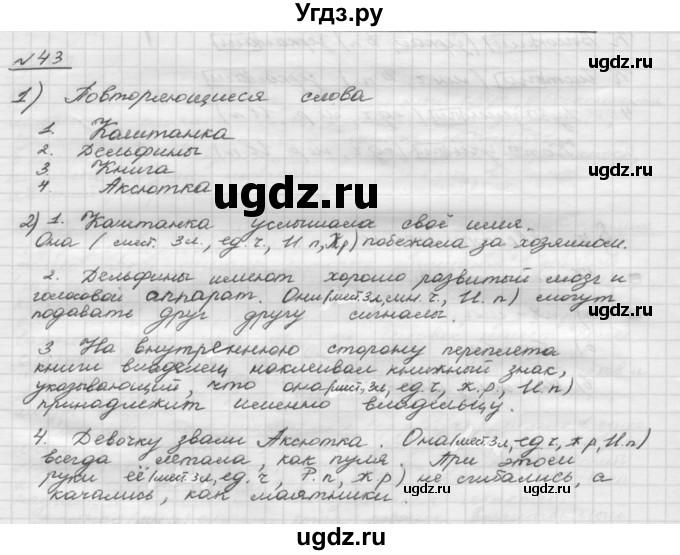 Угдз.ру
№43
1) Повторяющиеся слова
1. Каштанка
2. Дельфины
3 Книга
4. Аксютка
2) 1. Каштанка услышала своё имя.
Она (мест. 3л., ед.ч., И п, ж р) побежала за хозяином.
2. Дельфины имеют хорошо развитый мозг и
голосовой аппарат. Они (мест 3л, мн. ч., И. п) могут
подавать друг другу сигналы.
3 На внутреннюю сторону переплета
книги владелец наклеивал книжный знак,
указывающий, что она (мест., 3л, ед. ч, ж. р., И. п)
принадлежит именно владельцу.
4. Девочку звали Аксютка. Она (мест 3 л, ед ч, ж р, И. п)
всегда летала, как пуля. При этом
руки её (мест. 3л, ед. ч, Р. п, ж р) не сгибались, а
качались, как маятники.
ugdz.ru
ugdz.ru
ugdz.ru
ugdz.ru
ugdz.ru
ugdz.ru
ugdz.ru
ugdz.ru
ugdz.ru